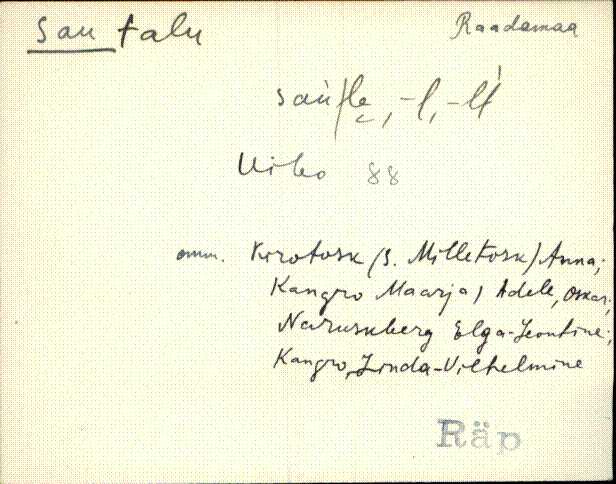 Sau talu
Raadamaa
sau̬/le̬, -l, -lt
Uibo 88
omn. Kirotosk (s. Milletosk) Anna;
Kangro Maarja, Adele, Oskar;
Naruskberg Elga-Leontine;
Kangro, Linda-Vilhelmine
Räp